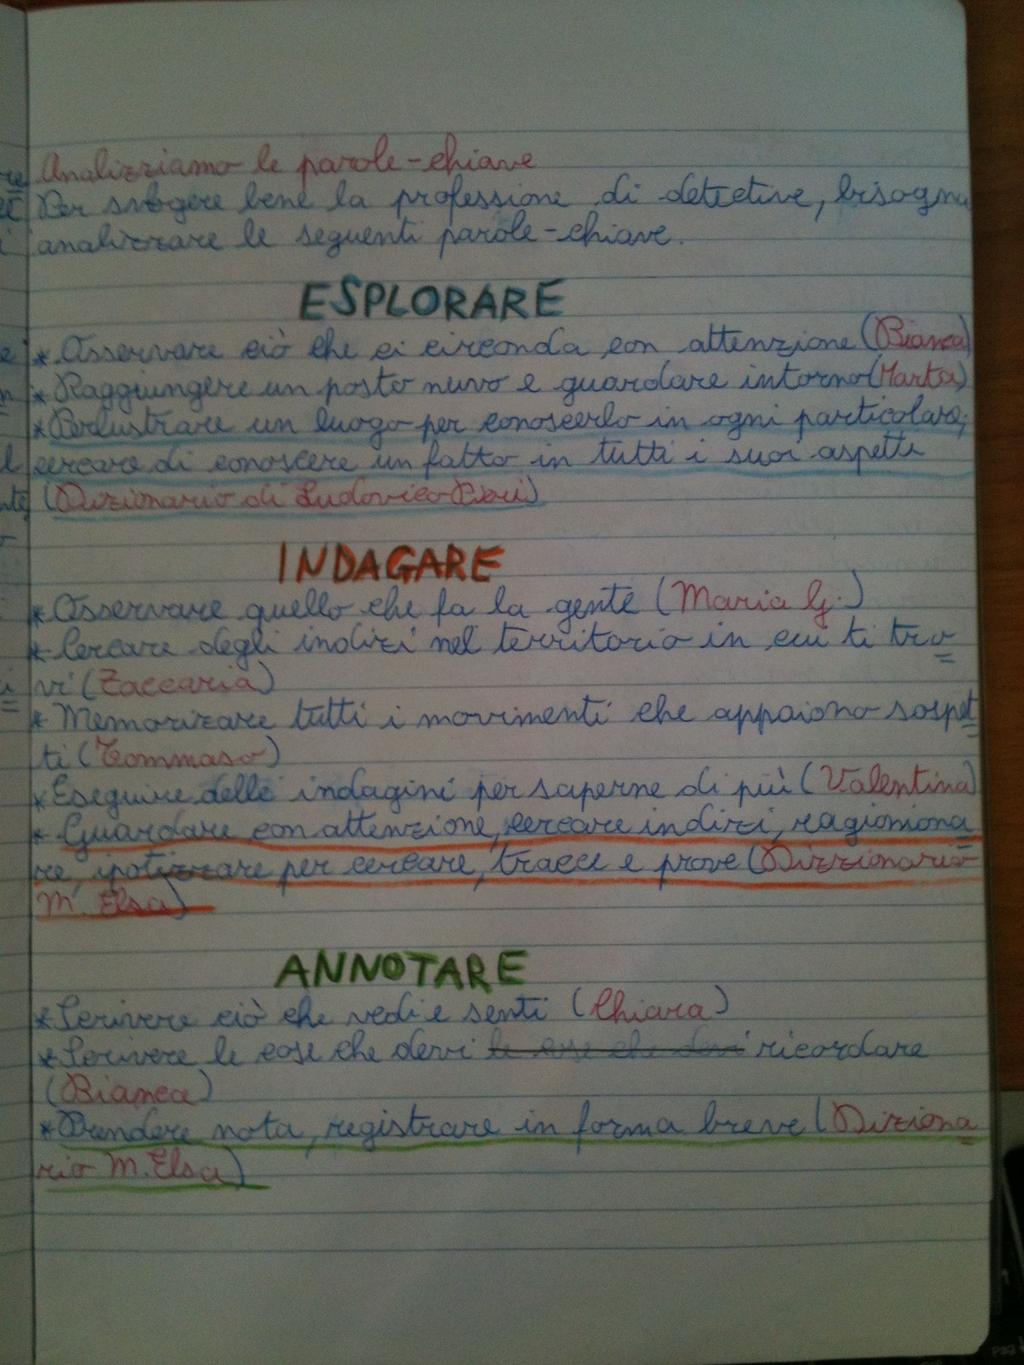 Analizziamo le parole-chiave
Per svogere bene la professione di detective, bisogna
analizzare le seguenti parole-chiave.
ESPLORARE
* Osservare ciò che ci circonda con attenzione (Bianca)
* Raggiungere un posto nuvo e guardare intorno (Marta)
* Perlustrare un luogo per conoscerlo in ogni particolare;
cercare di conoscere un fatto in tutti i suoi aspetti
(Dizionario di Ludovico
INDAGARE
* Osservare quello che fa la gente (Maria G.)
* Cercare degli indizi nel territorio in cui ti tro
vi (Zaccaria)
* Memorizzare tutti i movimenti che appaiono sospet
ti (Tommaso)
* Eseguire delle indagini per saperne di più (Valentina)
* Guardare con attenzione, cercare indizi, ragiomona
re, ipotizzare per cercare, tracce e prove (Dizzionario
M. Elsa)
ANNOTARE
* Scrivere ciò che vedi e senti (Chiara)
* Scrivere le cose che devi le cose che devi ricordare
(Bianca)
* Prendere nota, registrare in forma breve (Diziona
rio M. Elsa)